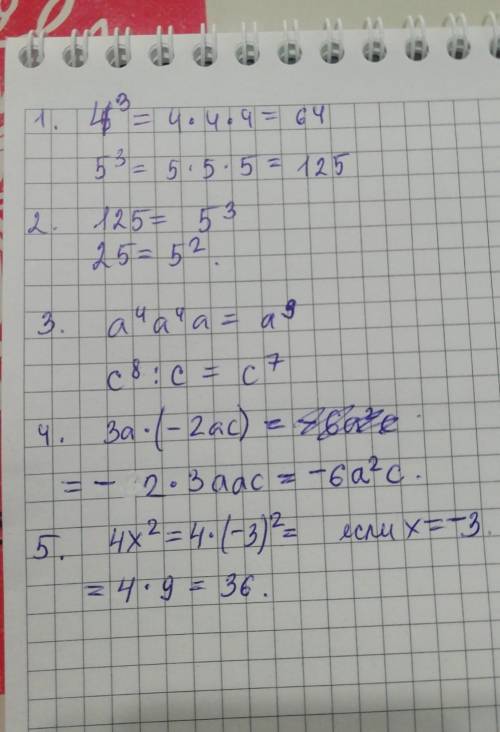 1. 4³ = 4 · 4 · 4 = 64
5³ = 5 · 5 · 5 = 125
2. 125 = 5³
25 = 5².
3. a⁴a⁴a = a⁹
c⁸ : c = c⁷
4. 3a · (-2ac) =
= - 2 · 3aac = -6a²c.
5. 4x² = 4 · (-3)² = если x = -3.
= 4 · 9 = 36.